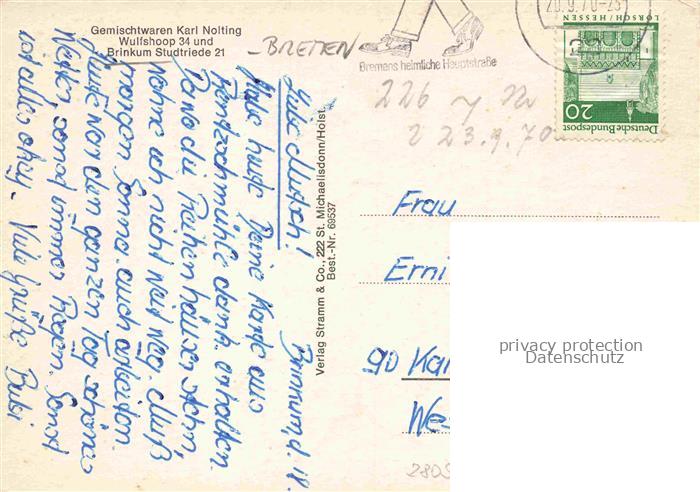 Gemischtwaren Karl Nolting
Wulfshoop 34 und
Brinkum Studtriede 21
BRETTEN
Bremens heimliche Hauptstraße
20.9.70-23
LORSCH / HESSEN
20
Deutsche Bundespost
226
2 23.9.70
Verlag Stramm & Co., 222 St. Michaelisdonn/Holst.
Best.-Nr. 69537
Brinkum, d. 18.
Gute Mutsch!
Habe heute Deine Karte aus
dank. erhalten.
Da wo die Reihenhäuser stehn,
wohne ich nicht weit weg. Muß
morgen Sonna. auch arbeiten.
Heute war den ganzen Tag schönes
Wetter sonst immer Regen. Sonst
ist alles okay - Viele Grüße
Frau
Erni
90 Kar
Wes
privacy protection
Datenschutz